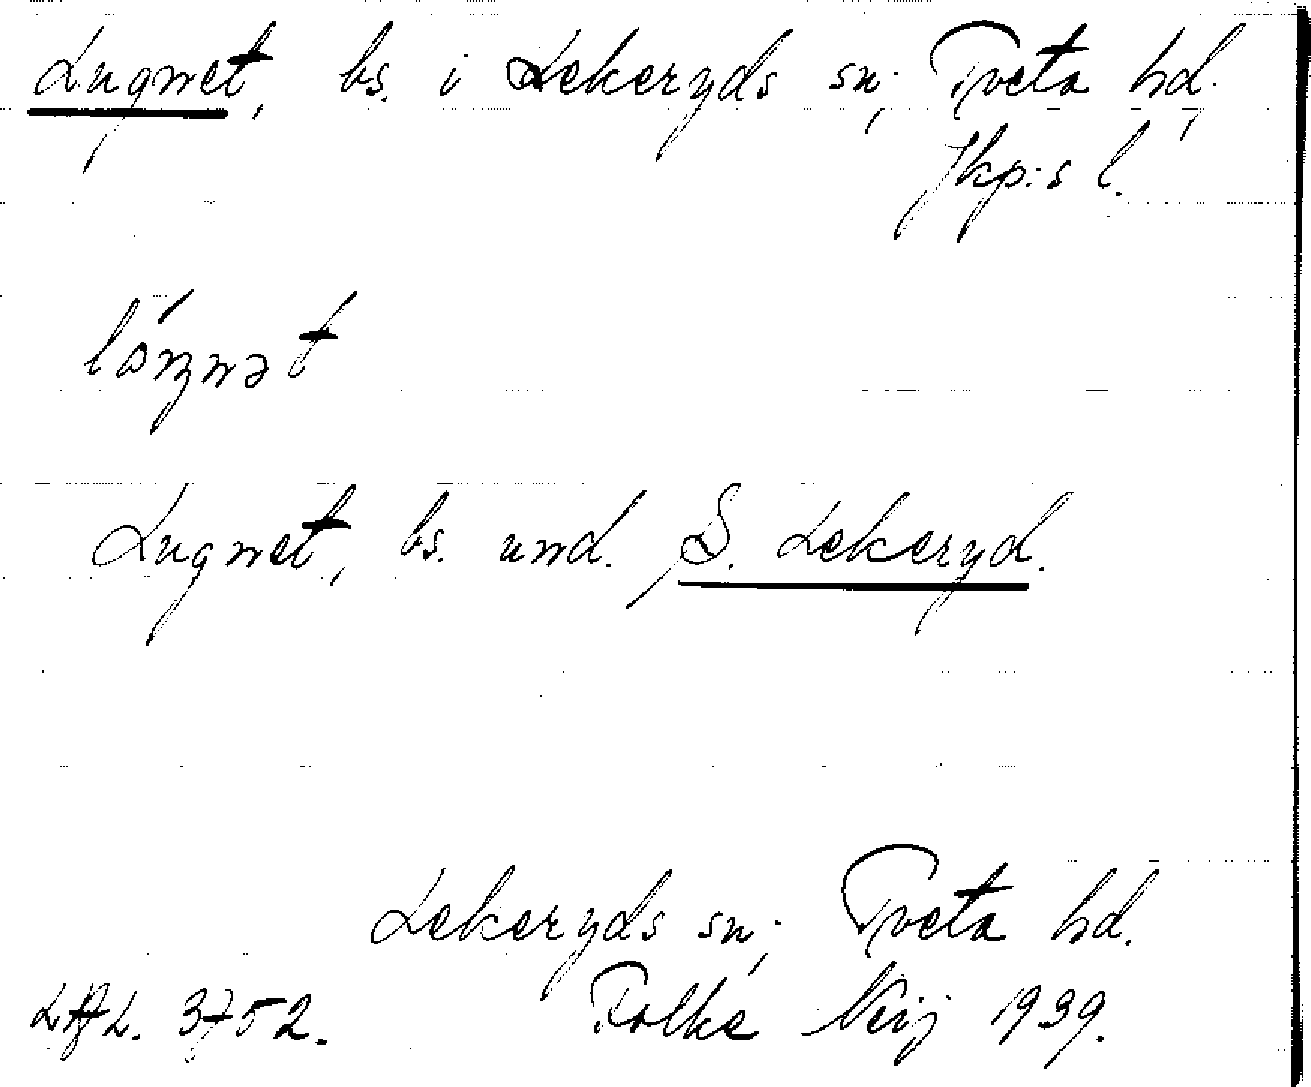 Lugnet, bs. i Lekeryds sn; Tveta hd.,
Jkp:s l.
Lugnet, bs. und. S. Lekeryd.
Lekeryds sn; Tveta hd.
3752. Folke Neij 1939.